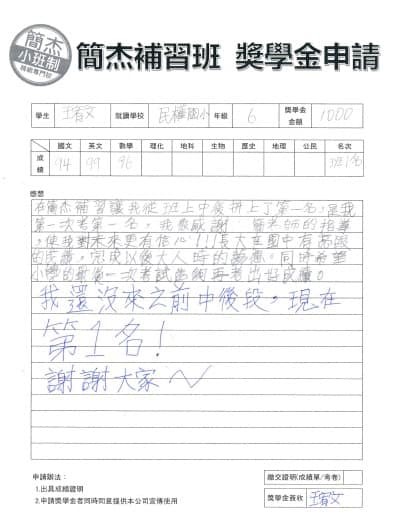 簡杰
小班制
簡杰補習班 獎學金申請
學生 王宥文 就讀學校 民權國小 年級 6 獎學金金額 1000
國文 英文 數學 理化 地科 生物 歷史 地理 公民 名次
成績 94 99 96 班1名
感想
在簡杰補習讓我從班上中後拼上了第一名,是我
第一次考第一名,我很感謝 簡老師的指導
,使我對未來更有信心!!!長大在國中有高
的成績,完成以後大人時的夢想。同時希望
小學的最後一次考試能夠再考出好成績。
我還沒來之前中後段,現在
第1名!
謝謝大家~
申請辦法:
1.出具成績證明
2.申請獎學金者同時同意提供本公司宣傳使用
繳交證明(成績單/考卷)
獎學金簽收 王宥文